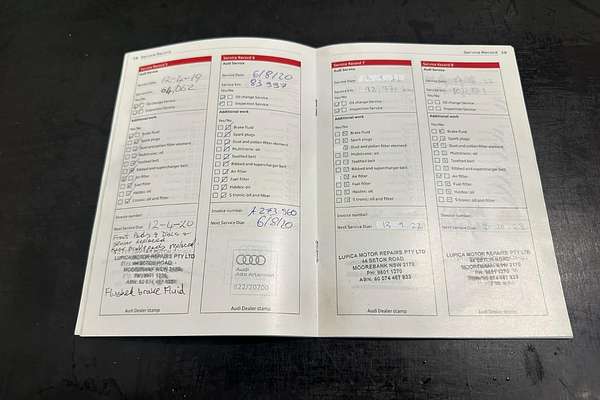 18 Service Record
Service Record 5
Audi Service
Service Date: 12-4-19
Service km:
Oil change Service
Inspection Service
Additional work
Yes/No
Brake fluid
Spark plugs
Dust and pollen filter element
Multitronic: oil
Toothed belt
Ribbed and supercharger belt
Air filter
Fuel filter
Haldex: oil
S tronic: oil and filter
Invoice number:
Next Service Due: 12-4-20
Front Pads & Discs &
sensor replaced
replaced
LUPICA MOTOR REPAIRS PTY LTD
44 SETON ROAD
MOOREBANK NSW 2170
PH: 9601 1270
ABN: 60 074 467 933
Flushed brake Fluid
Audi Dealer stamp
Service Record 6
Audi Service
Service Date: 6/8/20
Service km: 83997
Oil change Service
Inspection Service
Additional work
Yes/No
Brake fluid
Spark plugs
Dust and pollen filter element
Multitronic: oil
Toothed belt
Ribbed and supercharger belt
Air filter
Fuel filter
Haldex: oil
S tronic: oil and filter
Invoice number: A273960
Next Service Due: 6/8/20
Audi
822/20700
Audi Dealer stamp
Service Record 19
Service Record 7
Audi Service
Service Date:
Service km:
Oil change Service
Inspection Service
Additional work
Yes/No
Brake fluid
Spark plugs
Dust and pollen filter element
Multitronic: oil
Toothed belt
Ribbed and supercharger belt
Air filter
Fuel filter
Haldex: oil
S tronic: oil and filter
Invoice number:
Next Service Due:
LUPICA MOTOR REPAIRS PTY LTD
44 SETON ROAD
MOOREBANK NSW 2170
PH: 9601 1270
ABN: 60 074 467 933
Audi Dealer stamp
Service Record 8
Audi Service
Service Date:
Service km:
Oil change Service
Inspection Service
Additional work
Yes/No
Brake fluid
Spark plugs
Dust and pollen filter element
Multitronic: oil
Toothed belt
Ribbed and supercharger belt
Air filter
Fuel filter
Haldex: oil
S tronic: oil and filter
Invoice number:
Next Service Due:
LUPICA MOTOR REPAIRS PTY LTD
44 SETON ROAD
MOOREBANK NSW 2170
PH: 9601 1270
ABN: 60 074 467 933
Audi Dealer stamp